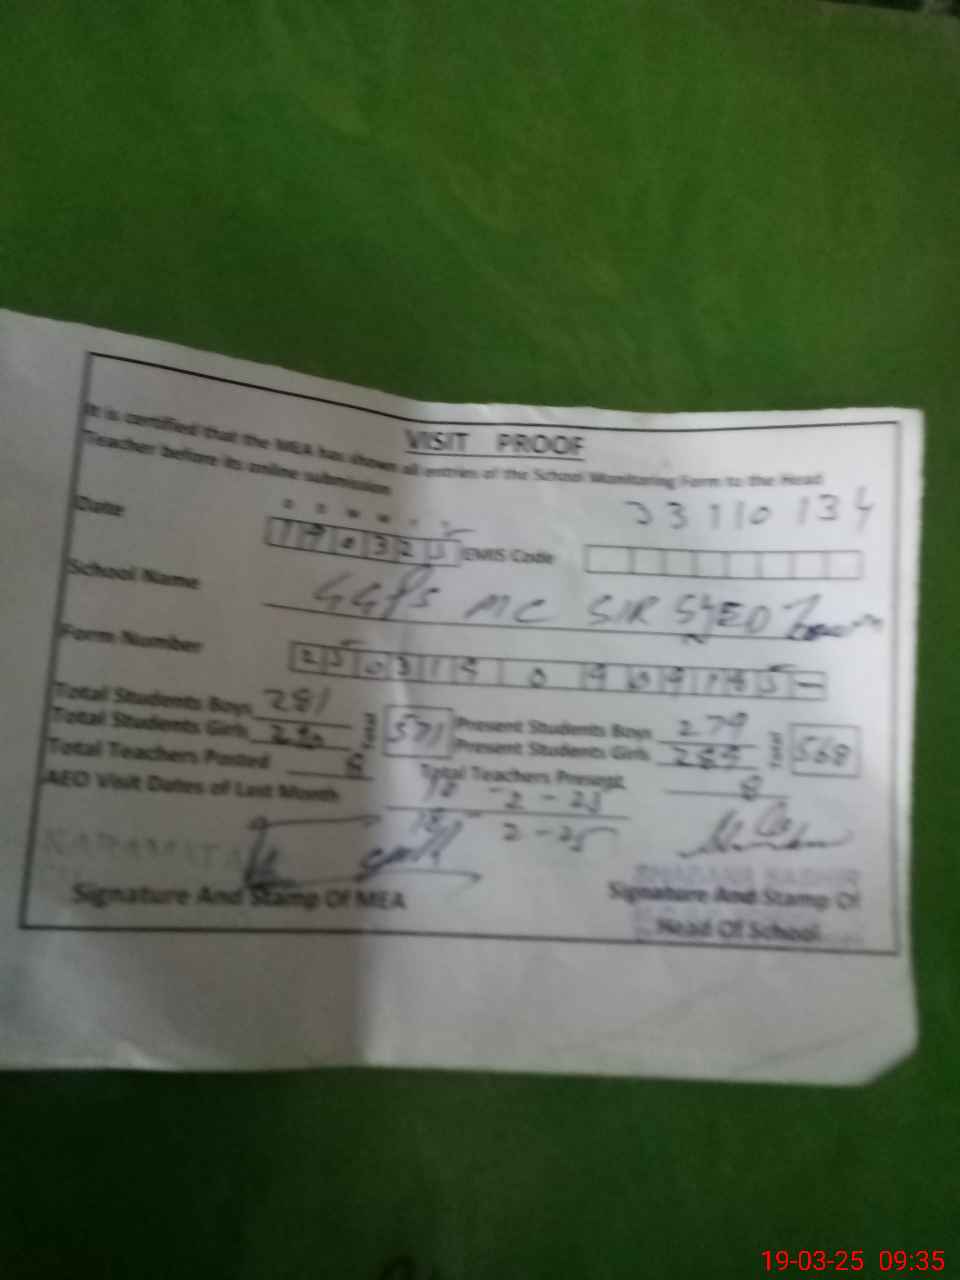 VISIT PROOF
It is certified that the MEA has shown all entries of the School Monitoring Form to the Head
Teacher before its online submission
Date D D M M Y Y 190325 EMIS Code 33110134
School Name GGPS MC SIR SYED Town
Form Number
Total Students Boys 281 Total 571 Present Students Boys 279 Total 568
Total Students Girls 290 Present Students Girls 289
Total Teachers Posted 8 Total Teachers Present 8
AEO Visit Dates of Last Month
2-25
Signature And Stamp Of MEA
Signature And Stamp Of
Head Of School
19-03-25 09:35